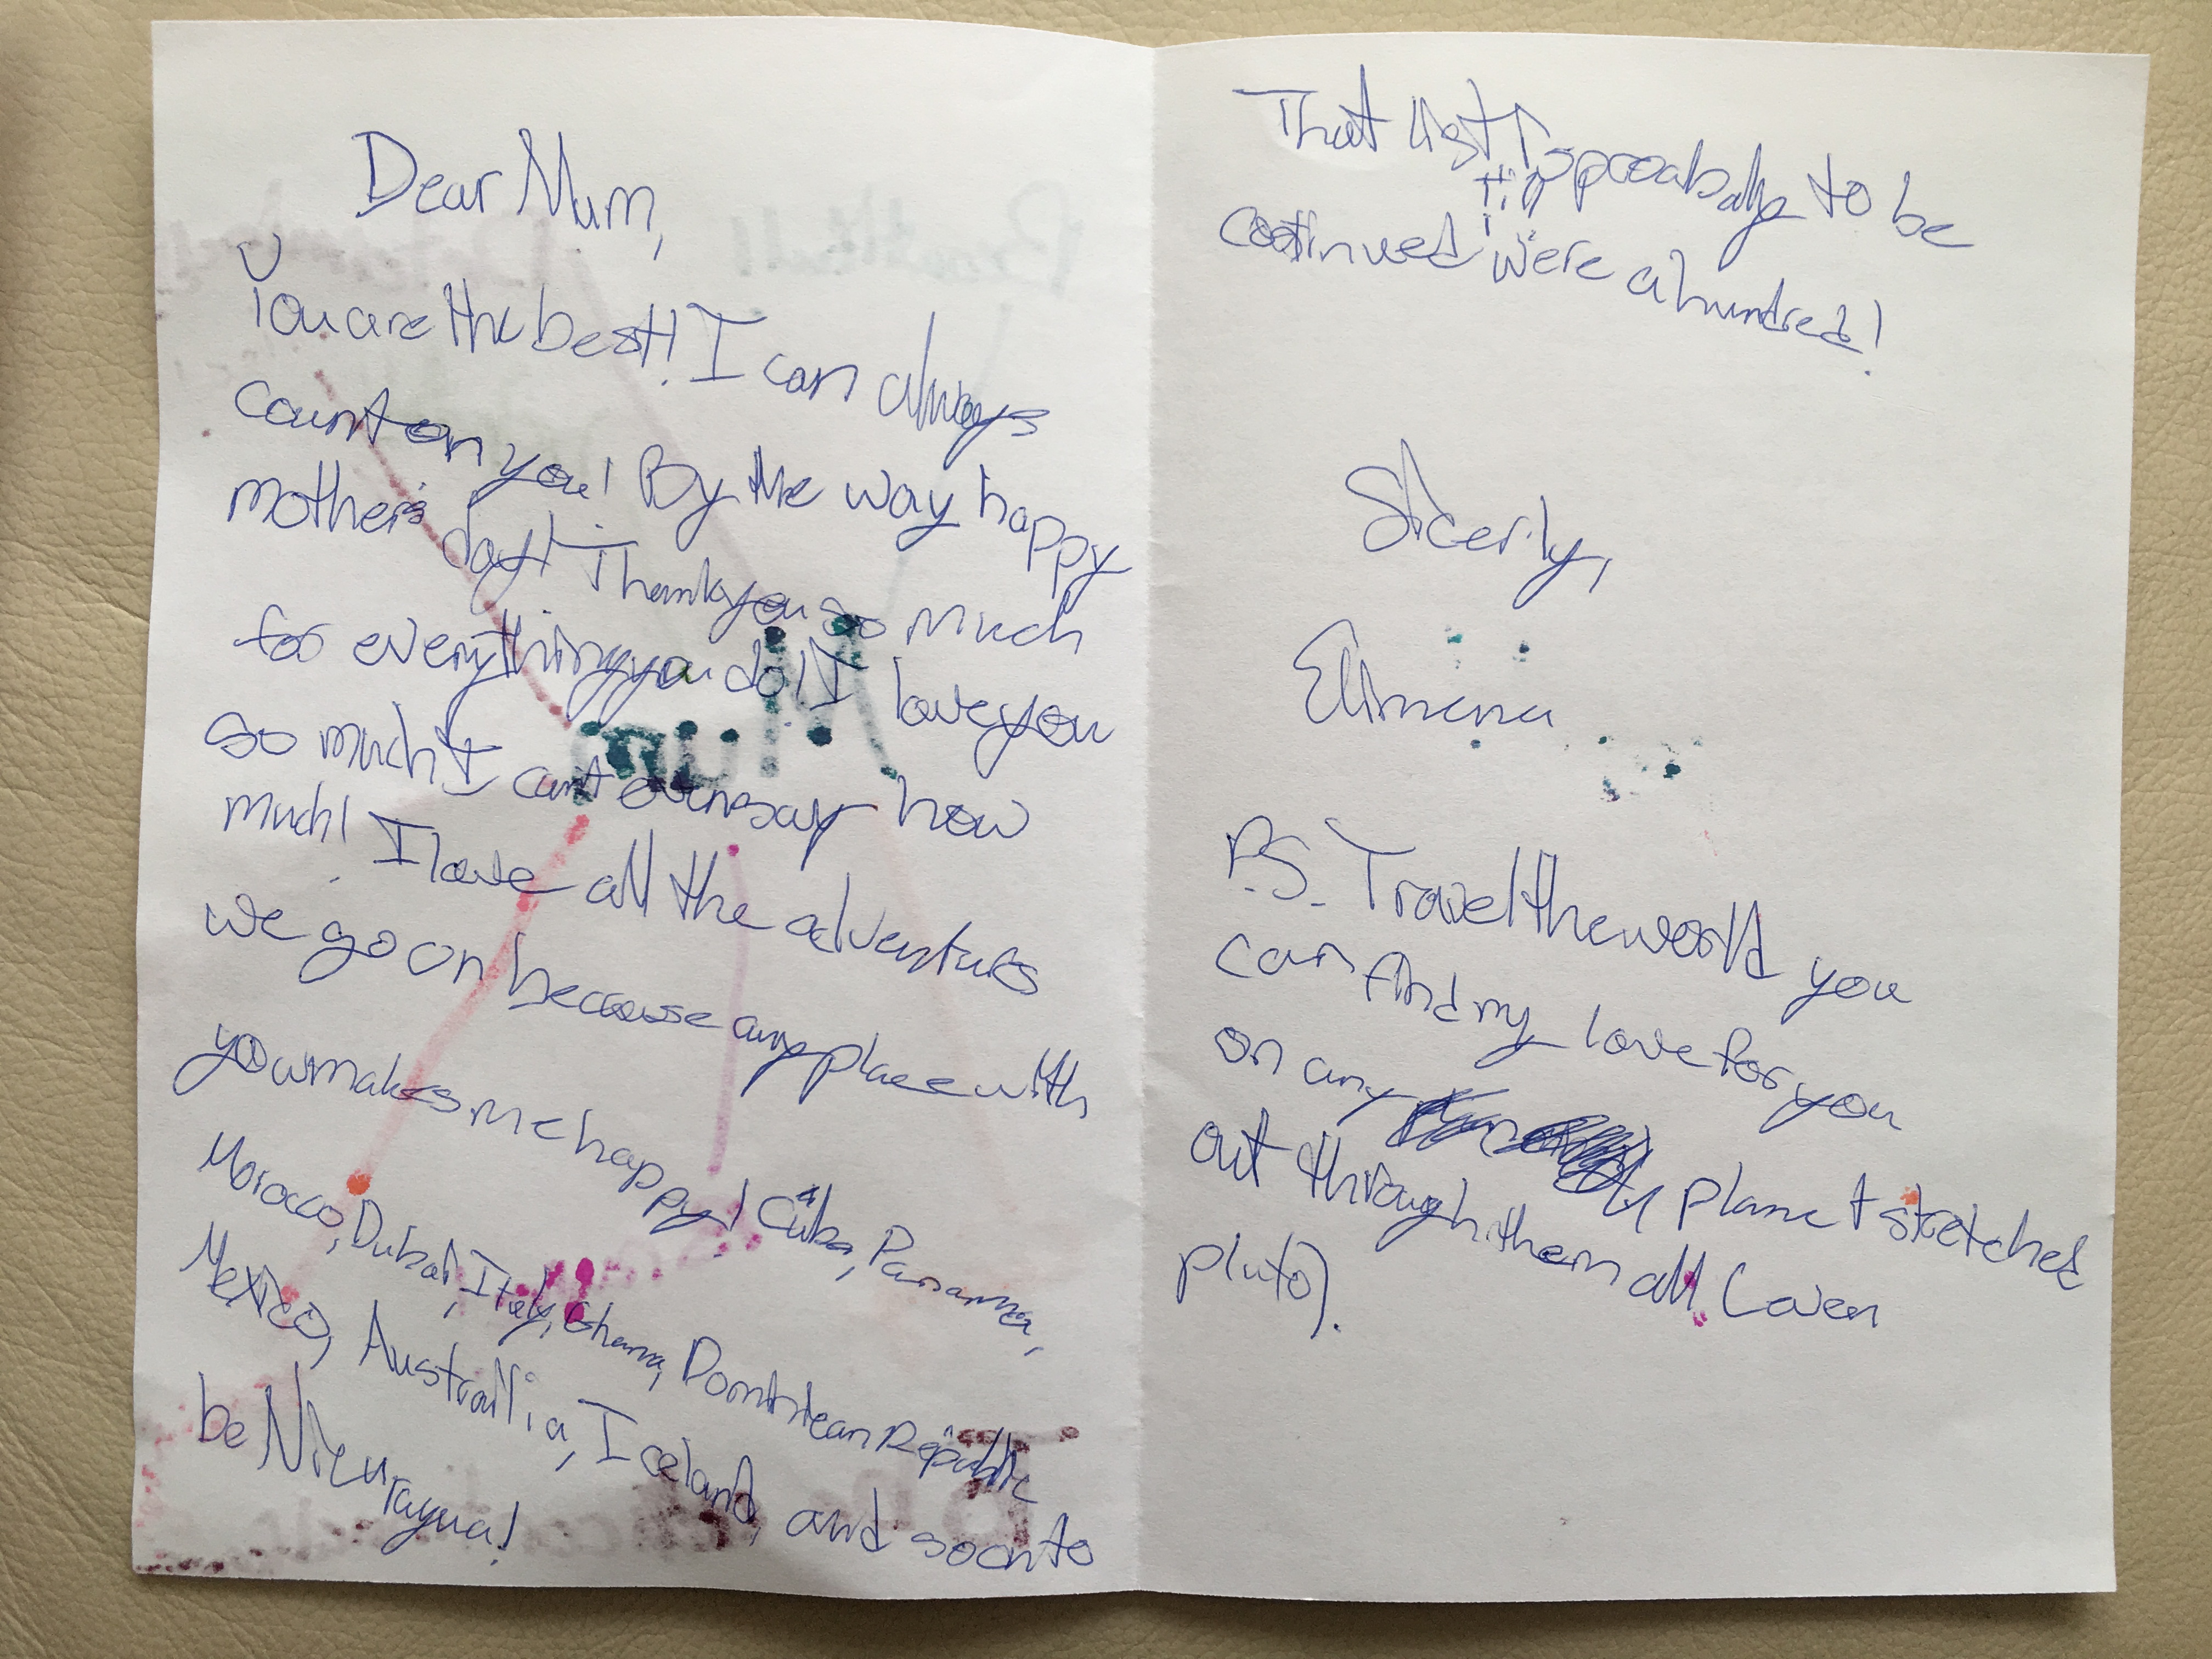 Dear Mum,
You are the best! I can always
count on you! By the way happy
mother's day! Thank you so much
for everything you do! I love you
so much I can't even say how
much! I love all the adventurs
we go on because any place with
you makes me happy! Cuba, Panamma,
Morocco, Dubai, Italy, Ghana, Dominican Republic
Mexico, Austrailia, Iceland, and soon to
be Nicurayua!
That list is proabaly to be
continued till were a hundred!
Sicerily,
Elimena
P.S. Travel the world you
can find my love for you
on any planet stretched
out through them all (even
pluto).
Mum